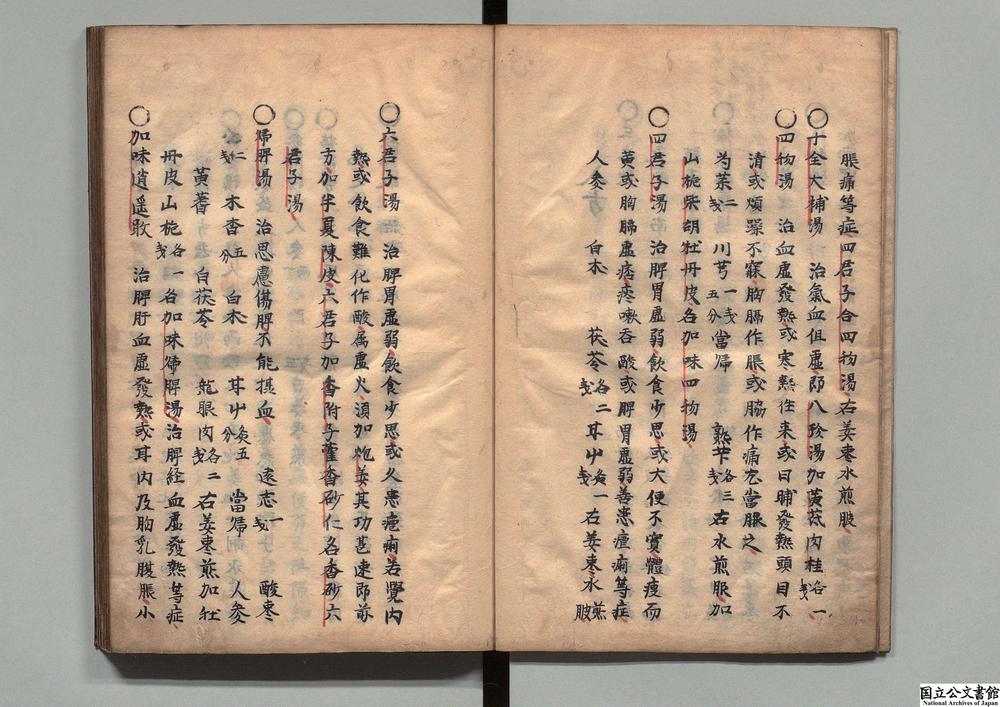 脹痛等症四君子合四物湯右姜枣水煎服
〇十全大補湯 治氣血俱虛即八珍湯加黃芪肉桂各一戔
〇四物湯 治血虛發熱或寒熱往来或日晡發熱頭目不
清或煩躁不寐胸膈作脹或脇作痛尤當服之
芍茱二戔 川芎一戔五分 當帰 熟芐各三戔 右水煎服加
山梔柴胡牡丹皮名加味四物湯
〇四君子湯 治脾胃虛弱飲食少思或大便不實體瘦而
黄或胸膈虛痞疼嗽吞酸或脾胃虛弱善患瘧痢等症
人参 白朮 茯苓各二戔 耳艸炙一戔 右姜枣水煎服
〇六君子湯 治脾胃虛弱飲食少思或久患瘧痢若覺内
熱或飲食難化作酸属虛火湏加炮姜其功甚速即前
方加半夏陳皮六君子加香附子藿香砂仁名香砂六
君子湯
〇帰脾湯 治思慮傷脾不能摂血 遠志一戔 酸枣
仁 木香五分 白朮 耳艸炙五分 當帰 人参
黃蓍 白茯苓 龍眼肉各二戔 右姜枣煎加牡
丹皮山梔各一戔 名加味帰脾湯治脾経血虛發熱等症
〇加味逍遥散 治脾肝血虛發熱或耳内及胸乳腹脹小
国立公文書館
National Archives of Japan